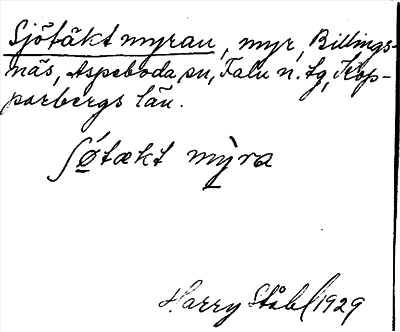 Sjötäkt myran, myr, Billings-
näs, Aspeboda sn, Falu n. tg, Kop-
parbergs län.
ʃø̀tækt mỳra
Harry Ståhl 1929